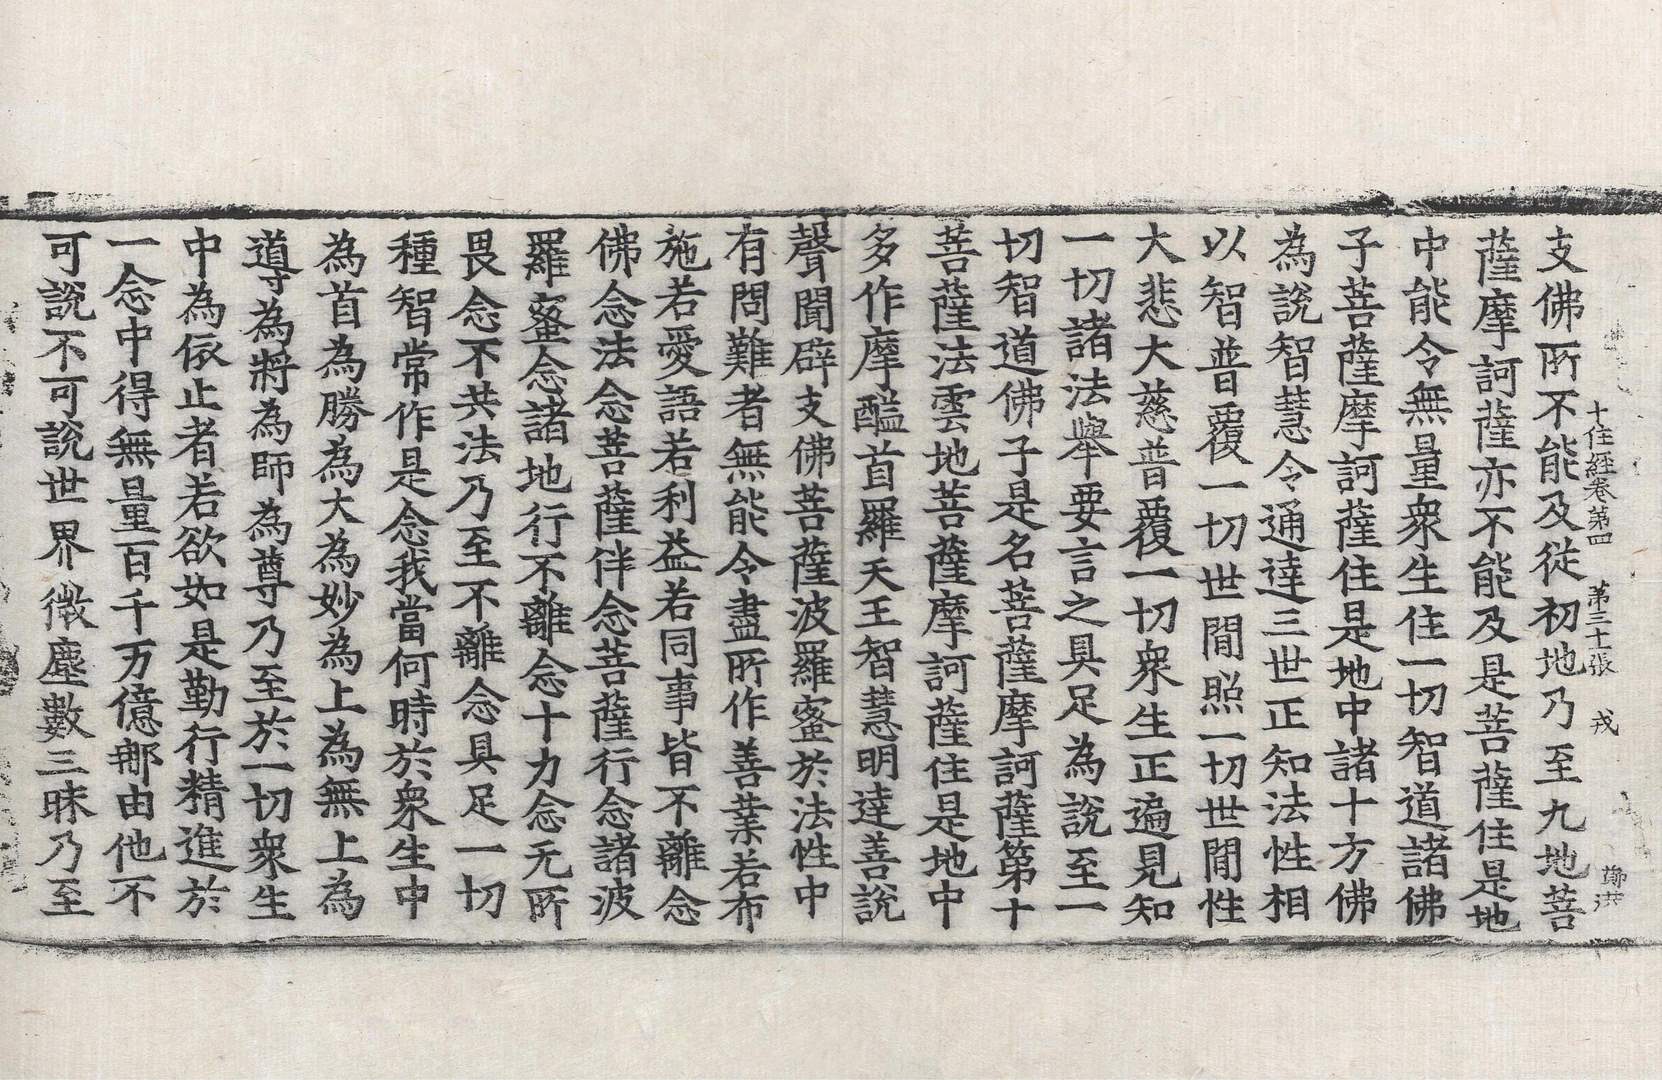 十住經卷第四　第三十張　戎　鄭洪
支佛所不能及從初地乃至九地菩
薩摩訶薩亦不能及是菩薩住是地
中能令無量衆生住一切智道諸佛
子菩薩摩訶薩住是地中諸十方佛
為說智慧令通達三世正知法性相
以智普覆一切世間照一切世間性
大悲大慈普覆一切衆生正遍見知
一切諸法舉要言之具足為說至一
切智道佛子是名菩薩摩訶薩第十
菩薩法雲地菩薩摩訶薩住是地中
多作摩醯首羅天王智慧明達善說
聲聞辟支佛菩薩波羅蜜於法性中
有問難者無能令盡所作善業若布
施若愛語若利益若同事皆不離念
佛念法念菩薩伴念菩薩行念諸波
羅蜜念諸地行不離念十力念无所
畏念不共法乃至不離念具足一切
種智常作是念我當何時於衆生中
為首為勝為大為妙為上為無上為
導為將為師為尊乃至於一切衆生
中為依止者若欲如是勤行精進於
一念中得無量百千万億那由他不
可說不可說世界微塵數三昧乃至